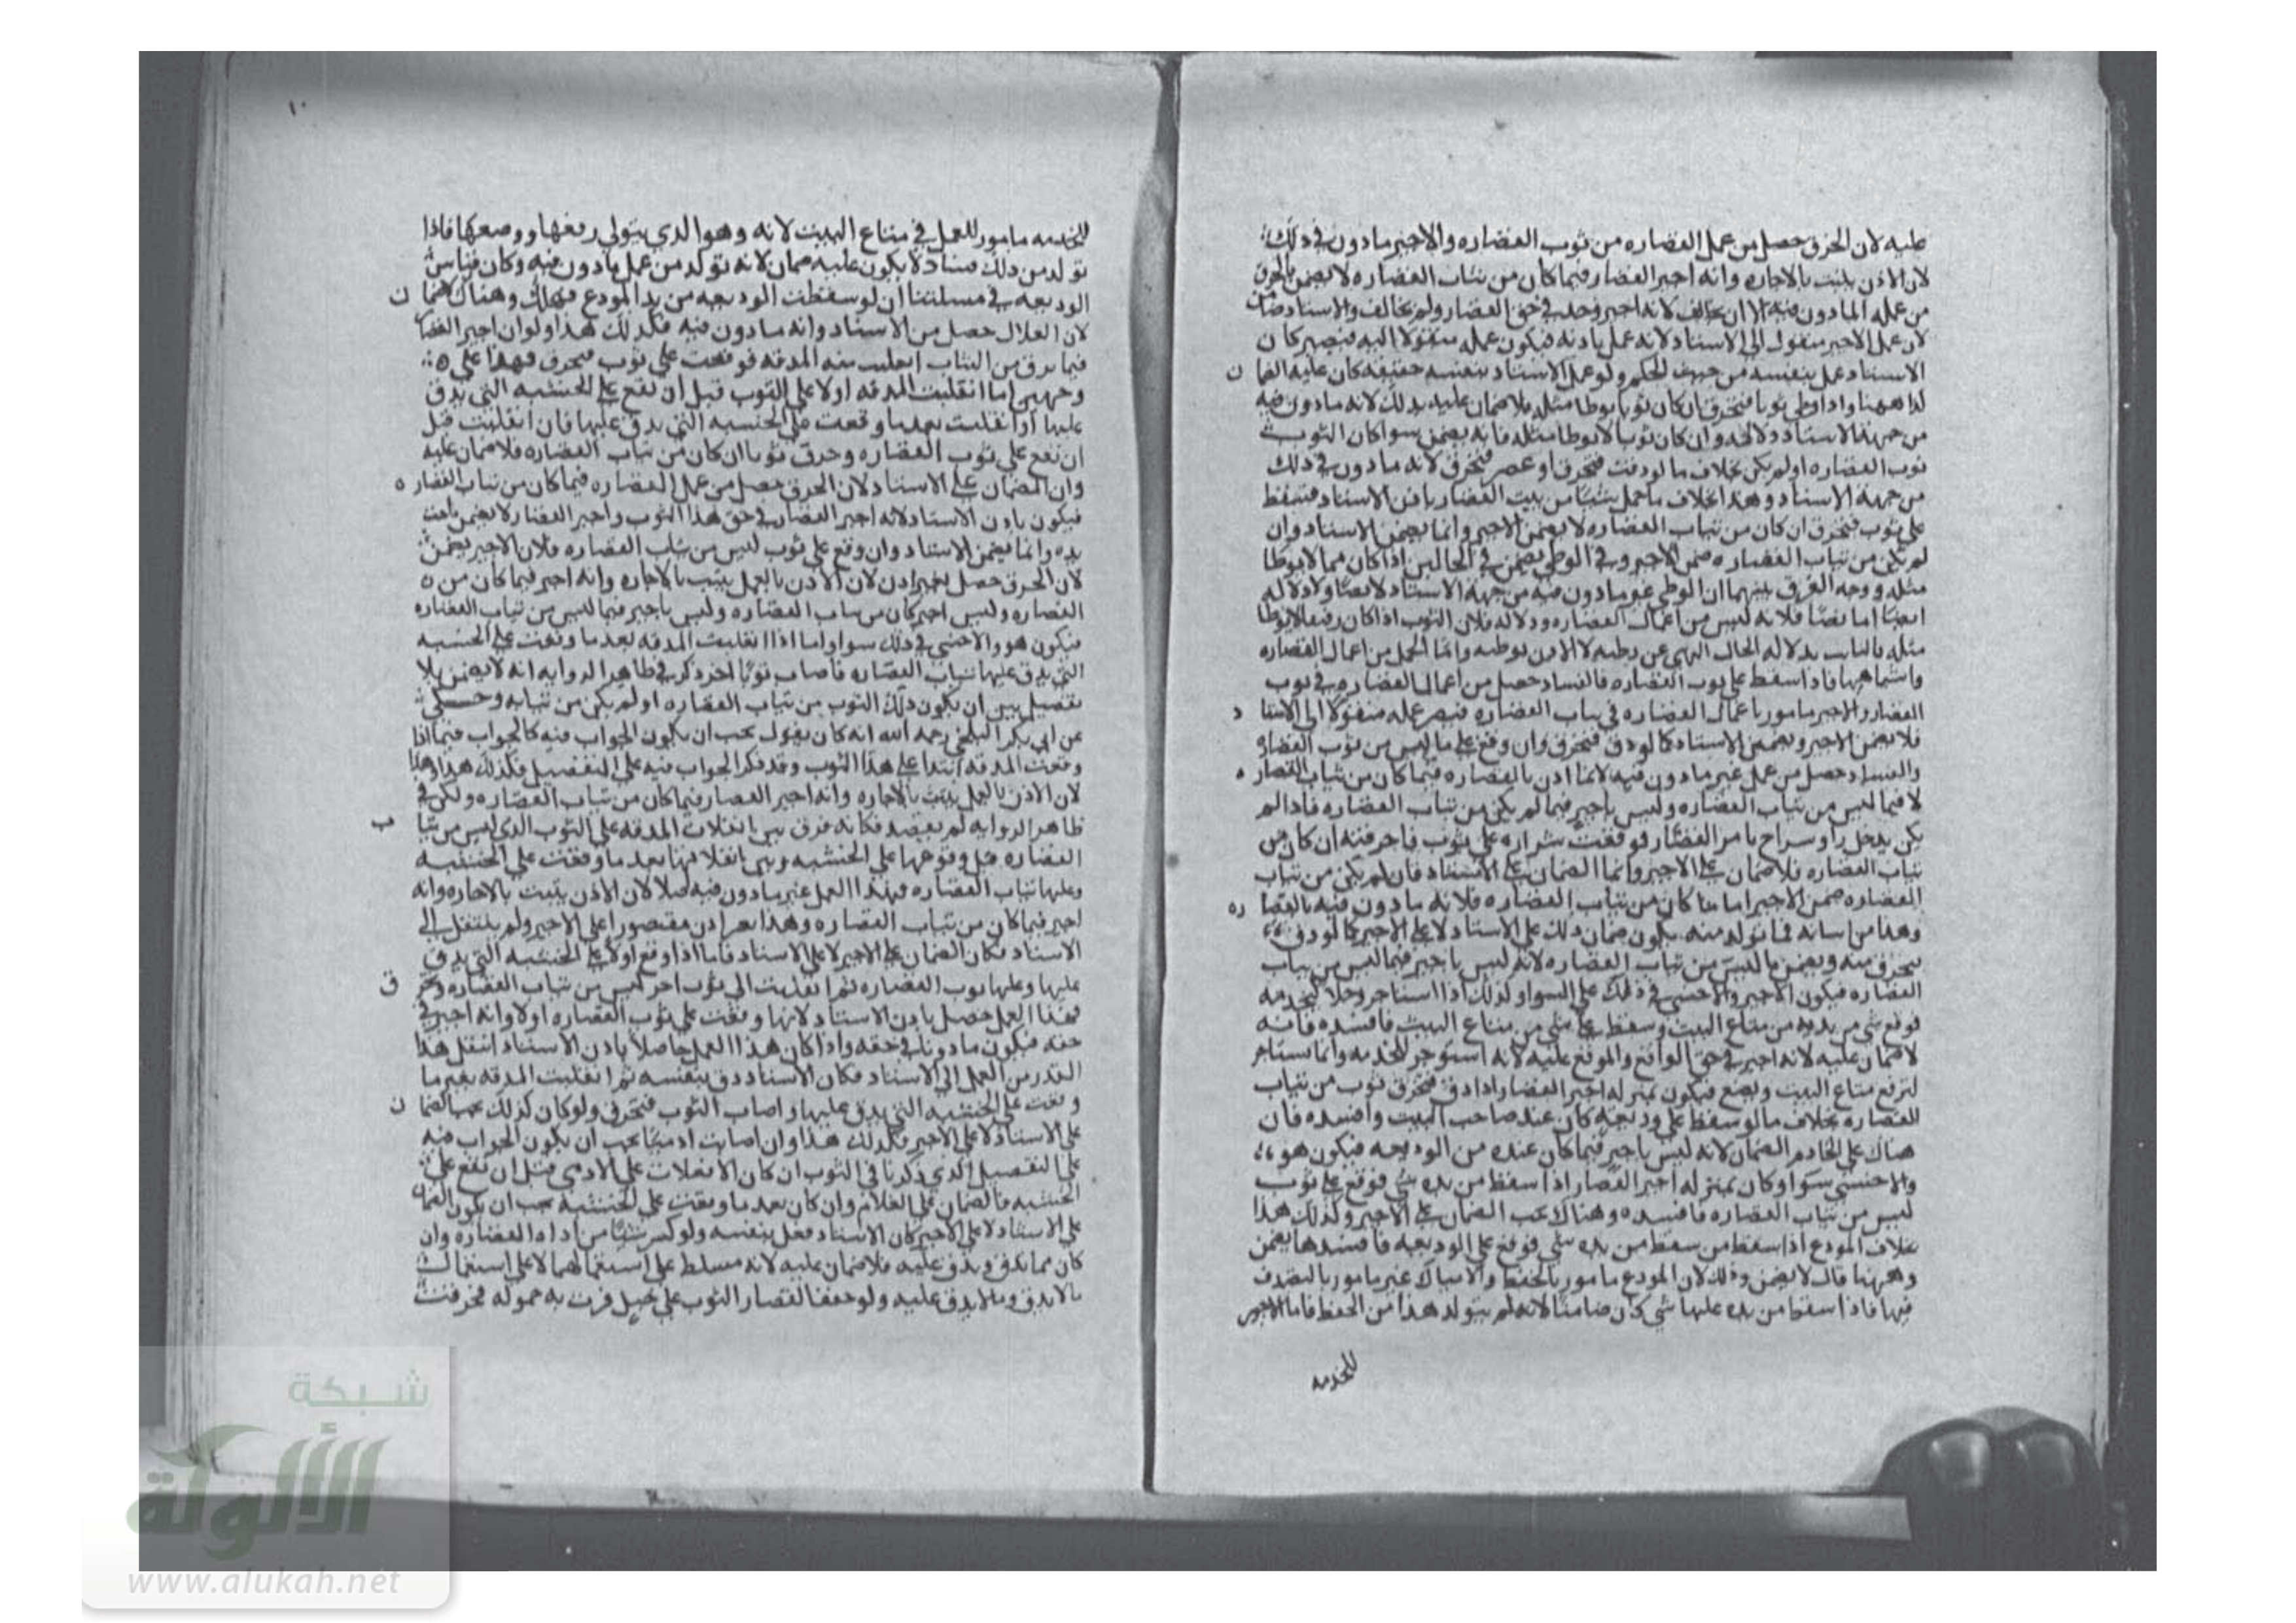 عليه لان الخرق حصل من عمل القصاره من ثوب القصاره والاجير مادون في ذلك
لان الاذن يثبت بالاجاره وانه اجير القصار فيما كان من ثياب القصاره لا يضمن بالخرق
من عمله المادون فيه الا ان يخالف لانه اجير وحد في حق القصار ولم يخالف والاستاد ضامن
لان عمل الاجير منقول الى الاستاد لانه عمل باذنه فيكون عمله منقولا اليه فيصير كان
الاستاد عمل بنفسه من حيث الحكم ولو عمل الاستاد بنفسه حقيقه كان عليه الضمان
كذا ههنا واذا وطي ثوبا فتخرق ان كان ثوبا يوطا مثله فلا ضمان عليه بذلك لانه مادون فيه
من جهة الاستاد دلالة وان كان ثوبا لا يوطا مثله فانه يضمن سوا كان الثوب
ثوب القصاره اولم يكن بخلاف ما لو دقت فتخرق او عصر فتخرق لانه مادون في ذلك
من جهة الاستاد وهذا بخلاف ما حمل شيئا من بيت القصار باذن الاستاد فسقط
على ثوب فتخرق ان كان من ثياب القصاره لا يضمن الاجير وانما يضمن الاستاد وان
لم يكن من ثياب القصاره ضمن الاجير وفي الوطي يضمن في الحالين اذا كان مما لا يوطا
مثله ووجه الفرق بينهما ان الوطي غير مادون فيه من جهة الاستاد لا نصا ولا دلاله
ايضا اما نصا فلانه ليس من اعمال القصاره ودلاله فلان الثوب اذا كان رفيعا لا يوطا
مثله فالثابت بدلاله الحال النهي عن وطيه لا الاذن بوطيه واما الحمل من اعمال القصاره
واشباهها فاذا سقط على ثوب القصاره فالفساد حصل من اعمال القصاره في ثوب
القصار والاجير مامور باعمال القصاره في ثياب القصاره فيصير عمله منقولا الى الاستاد
فلا يضمن الاجير ويضمن الاستاد كما لو دق فتخرق وان وقع على ما ليس من ثوب القصاره
والفساد حصل من عمل غير مادون فيه لانما اذن بالقصاره فيما كان من ثياب القصاره
لا فيما ليس من ثياب القصاره وليس باجير فيما لم يكن من ثياب القصاره فاذا لم
يكن يدخل نارا وسراج بامر القصار فوقعت شراره على ثوب فاحرقته ان كان من
ثياب القصاره فلا ضمان على الاجير وانما الضمان على الاستاد فان لم يكن من ثياب
القصاره ضمن الاجير اما ما كان من ثياب القصاره فلانه مادون فيه بالقصاره
وهذا من فما تولد منه يكون ضمان ذلك على الاستاد لا على الاجير كما لو دق
فتخرق منه ويضمن ما ليس من ثياب القصاره لانه ليس باجير فيما ليس من ثياب
القصاره فيكون الاجير والاجنبي في ذلك على السوا وكذلك اذا استاجر رجلا ليخدمه
فوقع شي من يديه من متاع البيت وسقط على شي من متاع البيت فافسده فانه
لا ضمان عليه لانه اجير في حق الواقع والموقع عليه لانه استوجر للخدمه وانما يستاجر
لترفع متاع البيت ويضع فيكون بمنزله اجير القصار اذا دق فتخرق ثوب من ثياب
القصاره بخلاف ما لو سقط على وديعه كان عند صاحب البيت وافسده فان
هناك على الخادم الضمان لانه ليس باجير فيما كان عنده من الوديعه فيكون هو
والاجنبي سوا وكان بمنزله اجير القصار اذا سقط من يده شي فوقع على ثوب
ليس من ثياب القصاره فافسده وهناك يجب الضمان على الاجير وكذلك هذا
بخلاف المودع اذا سقط من يده شي فوقع على الوديعه فافسدها يضمن
وههنا قال لا يضمن وذلك لان المودع مامور بالحفظ والامساك غير مامور بالتصرف
فيها فاذا سقط من يده عليها شي كان ضامنا لانه لم يتولد هذا من الحفظ فاما الاجير
للخدمه
١٠
للخدمه مامور للعمل في متاع البيت لانه وهو الذي يتولى رفعها ووضعها فاذا
تولد من ذلك فساد لا يكون عليه ضمان لانه تولد من عمل مادون فيه وكان قياس
الوديعه في مسئلتنا ان لو سقطت الوديعه من يد المودع فهلك وهناك ضمان
لان الهلاك حصل من الاستاد وانه مادون فيه فكذلك هذا ولو ان اجير القصار
فيما يدق من الثياب انفلتت منه المدقه فوقعت على ثوب فتخرق فهذا على
وجهين اما انفلتت المدقه اولا على الثوب قبل ان تقع على الخشبه التي يدق
عليها او انفلتت بعدما وقعت على الخشبه التي يدق عليها فان انفلتت قبل
ان تقع على ثوب القصاره وخرق ثوبا ان كان من ثياب القصاره فلا ضمان عليه
وان الضمان على الاستاد لان الخرق حصل من عمل القصاره فيما كان من ثياب القصاره
فيكون باذن الاستاد لانه اجير القصار في حق هذا الثوب واجير القصار لا يضمن ما جنت
يده وانما يضمن الاستاد وان وقع على ثوب ليس من ثياب القصاره فلان الاجير يضمن
لان الخرق حصل بغير اذن لان الاذن بالعمل يثبت بالاجاره وانه اجير فيما كان من
القصاره وليس اجير كان من ثياب القصاره وليس باجير فيما ليس من ثياب القصاره
فيكون هو والاجنبي في ذلك سوا واما اذا انفلتت المدقه بعد ما وقعت على الخشبه
التي يدق عليها ثياب القصاره فاصاب ثوبا اخر ذكر في ظاهر الروايه انه لا يضمن بلا
تفصيل بين ان يكون ذلك الثوب من ثياب القصاره او لم يكن من ثيابه وحكي
عن ابي بكر البلخي رحمه الله انه كان يقول يجب ان يكون الجواب فيه كالجواب فيما اذا
وقعت المدقه ابتدا على هذا الثوب وقد ذكر الجواب فيه على التفصيل فكذلك هذا وهذا
لان الاذن بالعمل يثبت بالاجاره وانه اجير القصار فيما كان من ثياب القصاره ولكن في
ظاهر الروايه لم يفصل فكانه فرق بين انفلات المدقه على الثوب الذي ليس من ثياب
القصاره قبل وقوعها على الخشبه وبين انفلاتها بعد ما وقعت على الخشبه
وعليها ثياب القصاره فهذا العمل غير مادون فيه اصلا لان الاذن يثبت بالاجاره وانه
اجير فيما كان من ثياب القصاره وهذا بغير اذن مقتصورا على الاجير ولم ينتقل الى
الاستاد فكان الضمان على الاجير لا على الاستاد فاما اذا وقع اولا على الخشبه التي يدق
عليها وعليها ثوب القصاره ثم انفلتت الى ثوب اخر ليس من ثياب القصاره وتخرق
فهذا العمل حصل باذن الاستاد لانها وقعت على ثوب القصاره اولا وانه اجير في
حقه فيكون مادونا في حقه واذا كان هذا العمل حاصلا باذن الاستاد انتقل هذا
القدر من العمل الى الاستاد فكان الاستاد دق بنفسه ثم انفلتت المدقه بغير ما
وقعت على الخشبه التي يدق عليها واصاب الثوب فتخرق ولو كان كذلك يجب الضمان
على الاستاد لا على الاجير فكذلك هذا وان اصابت ادميا يجب ان يكون الجواب فيه
على التفصيل الذي ذكرنا في الثوب ان كان الانفلات على الادمي قبل ان تقع على
الخشبه فالضمان على الغلام وان كان بعد ما وقعت على الخشبه يجب ان يكون الضمان
على الاستاد لا على الاجير كان الاستاد فعل بنفسه ولو كسر شيئا من اداه القصاره وان
كان مما يدق ويدق عليه فلا ضمان عليه لانه مسلط على استعمالهما لا على استعمال
ما لا يدق ولا يدق عليه ولو جفف القصار الثوب على حبل فمرت به حموله فخرقت
شبكة
الألوكة
www.alukah.net